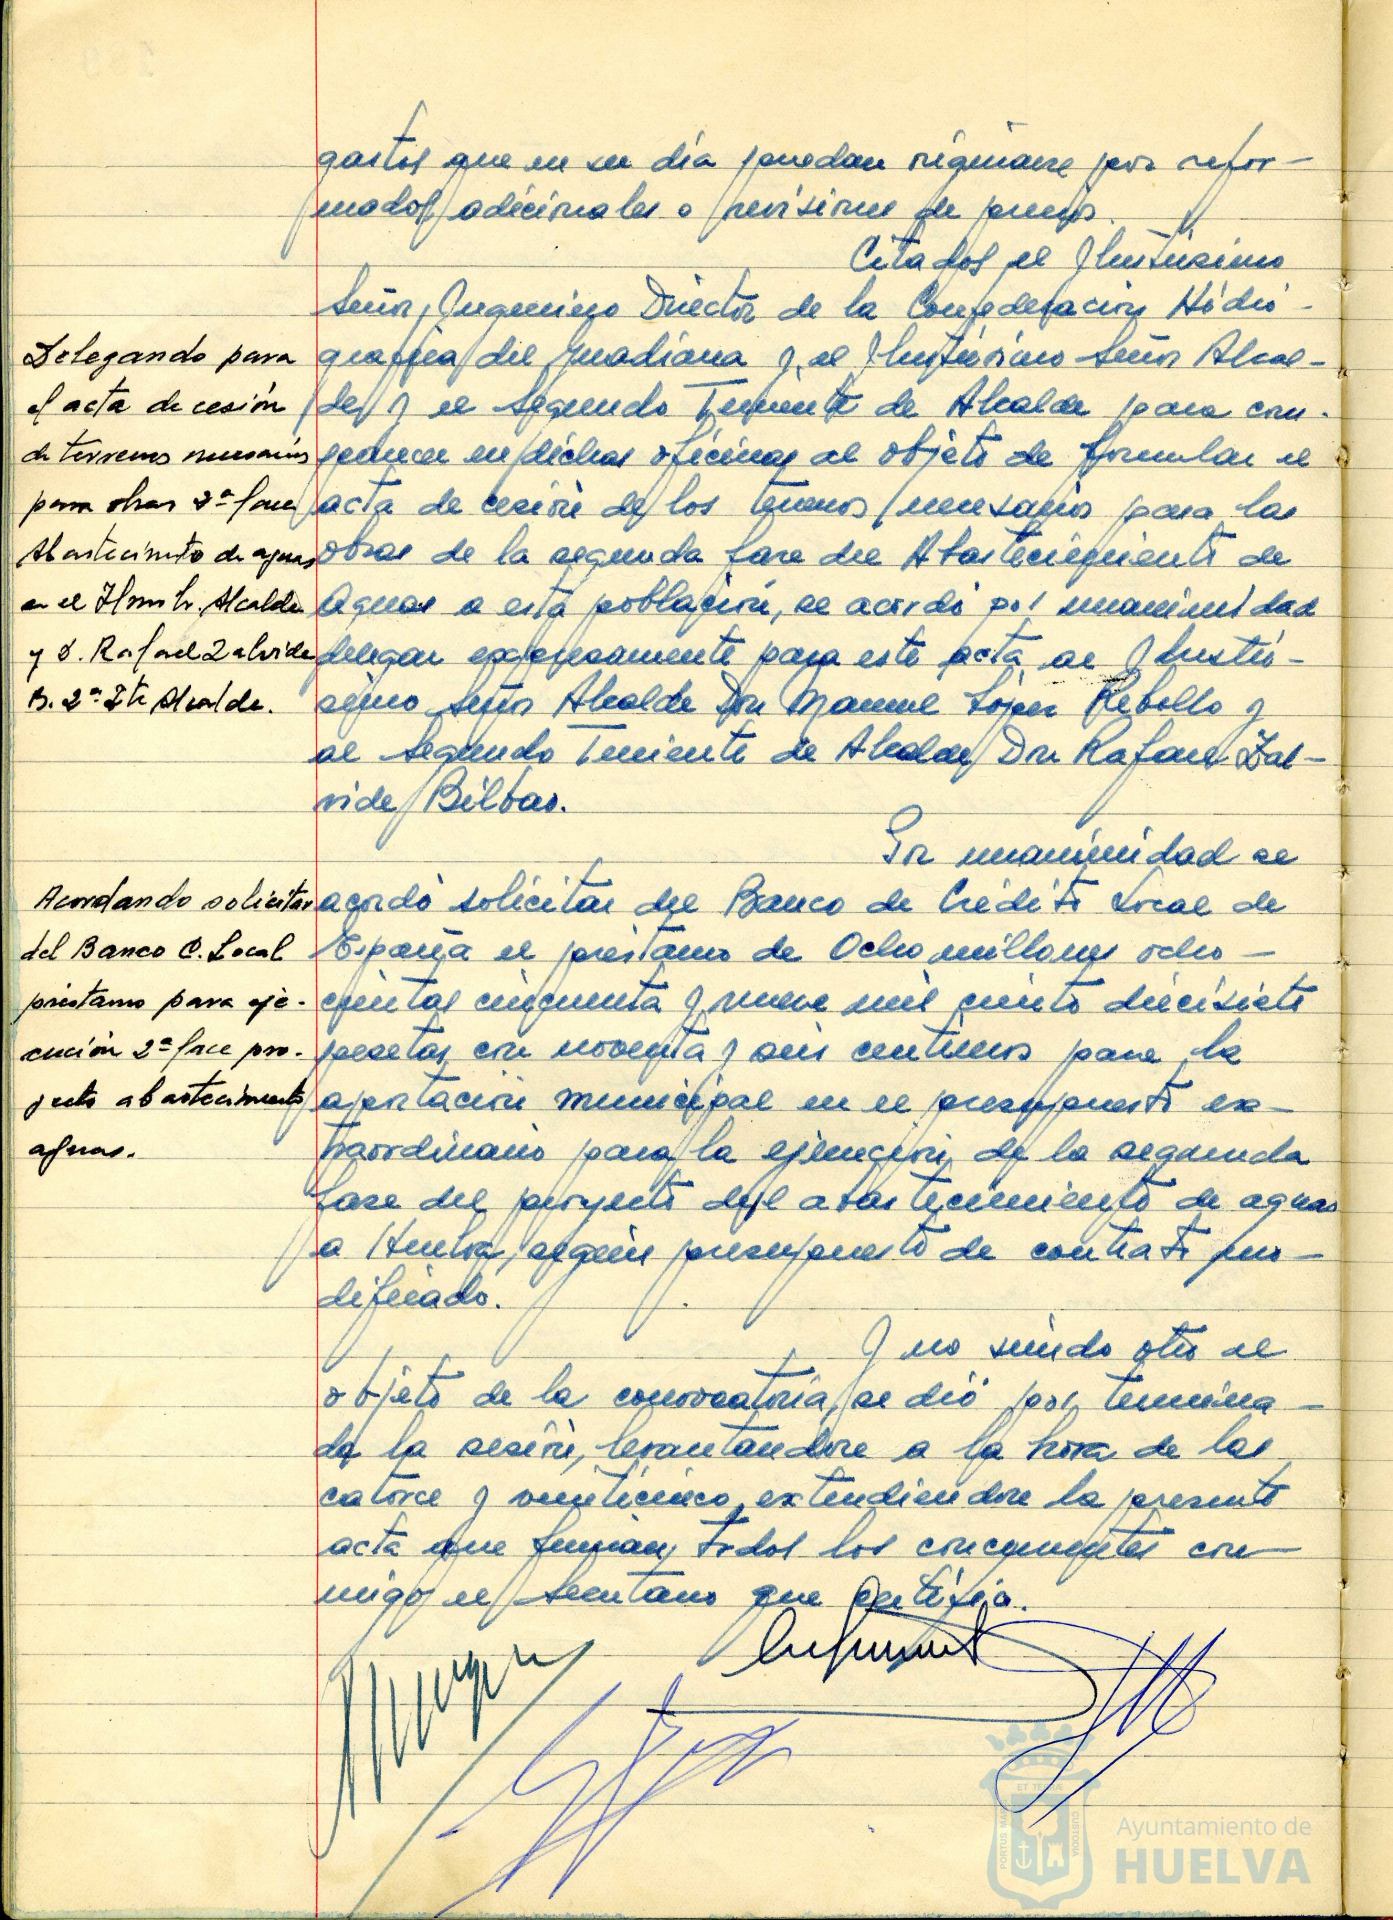 gastos que en su día puedan originarse por refor-
mados adicionales o revisiones de precios.
Citados el Ilustrísimo
Señor Ingeniero Director de la Confederación Hidro-
gráfica del Guadiana y el Ilustrísimo Señor Alcal-
de y el Segundo Teniente de Alcalde para com-
parecer en dichas oficinas al objeto de formular el
acta de cesión de los terrenos necesarios para las
obras de la segunda fase del Abastecimiento de
Aguas a esta población, se acordó por unanimidad
delegar expresamente para este acta al Ilustrí-
simo Señor Alcalde Don Manuel López Rebollo y
al Segundo Teniente de Alcalde Don Rafael Zal-
vide Bilbao.
Por unanimidad se
acordó solicitar del Banco de Crédito Local de
España el préstamo de Ocho millones ocho-
cientas cincuenta y nueve mil ciento diecisiete
pesetas con noventa y seis centimos para la
aportación municipal en el presupuesto ex-
traordinario para la ejecución de la segunda
fase del proyecto del abastecimiento de aguas
a Huelva, según presupuesto de contrato mo-
dificado.
Y no siendo otro el
objeto de la convocatoria, se dió por termina-
da la sesión, levantandose a la hora de las
catorce y veinticinco, extendiendose la presente
acta que firman todos los concurrentes con-
migo el Secretario que Certifico.
Delegando para
el acta de cesión
de terrenos necesarios
para obras 2ª fase
Abastecimto de aguas
en el Alcalde
y D. Rafael Zalvide
B. 2º Tte Alcalde.
Acordando solicitar
del Banco C. Local
préstamo para eje-
cución 2ª fase pro-
yecto abastecimiento
aguas.
Ayuntamiento de
HUELVA